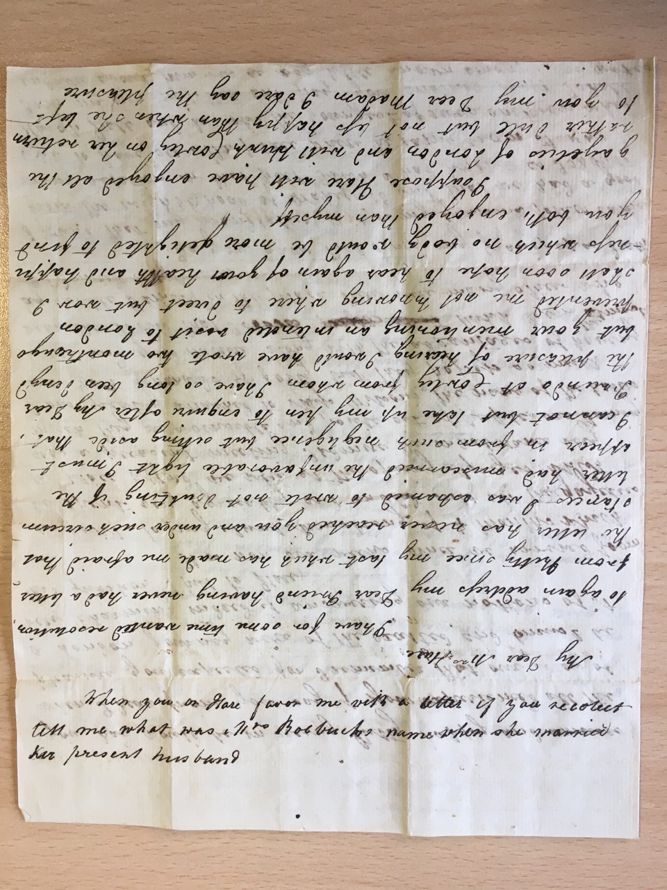 My Dear Mrs Hare
I have for some time wanted resolution,
to again address my Dear Friend having never had a letter
from Hetty since my last which has made me afraid that
the letter has never reached you and under such circum
stances I was ashamed to wrote not doubting if the
letter had miscarried the unfavorable light I must
appear in from such negligence but setting aside that,
I cannot but take up my pen to enquire after My Dear
Friends at Cowley from whom I have so long been denyd
the pleasure of hearing I would have wrote two months ago
but your mentioning an intended visit to London
prevented me not knowing where to direct but now I
shall soon hope to hear again of your health and happi
ness which no body would be more delighted to find
you both enjoyed than myself
I suppose Hare will have enjoyed all the
gayeties of London and will think Cowley on her return
rather dull but not less happy than when she left
to you my Dear Madam I dare say the pleasure
When you or Hare favor me with a letter if you recolect
tell me what was Mrs name when she married
her present husband